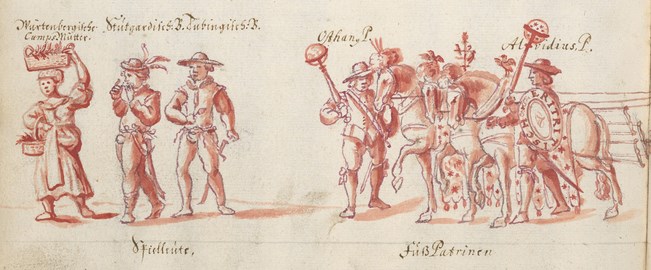 Würtenbergische
CumpsMütter.
Stutgardisch:B. Tubingisch:B.
Osthan, P.
Alsvidius, P.
Spielleute,
Füß Patrinen